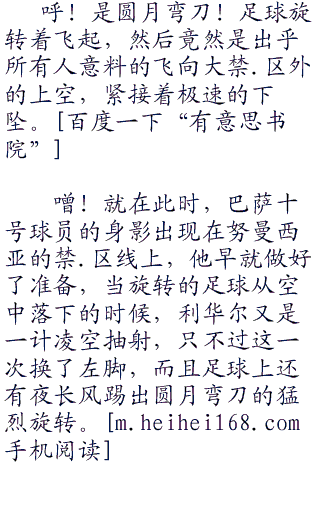 呼！是圆月弯刀！足球旋
转着飞起，然后竟然是出乎
所有人意料的飞向大禁.区外
的上空，紧接着极速的下
坠。[百度一下“有意思书
院”]
噌！就在此时，巴萨十
号球员的身影出现在努曼西
亚的禁.区线上，他早就做好
了准备，当旋转的足球从空
中落下的时候，利华尔又是
一计凌空抽射，只不过这一
次换了左脚，而且足球上还
有夜长风踢出圆月弯刀的猛
烈旋转。[m.heihei168.com
手机阅读]